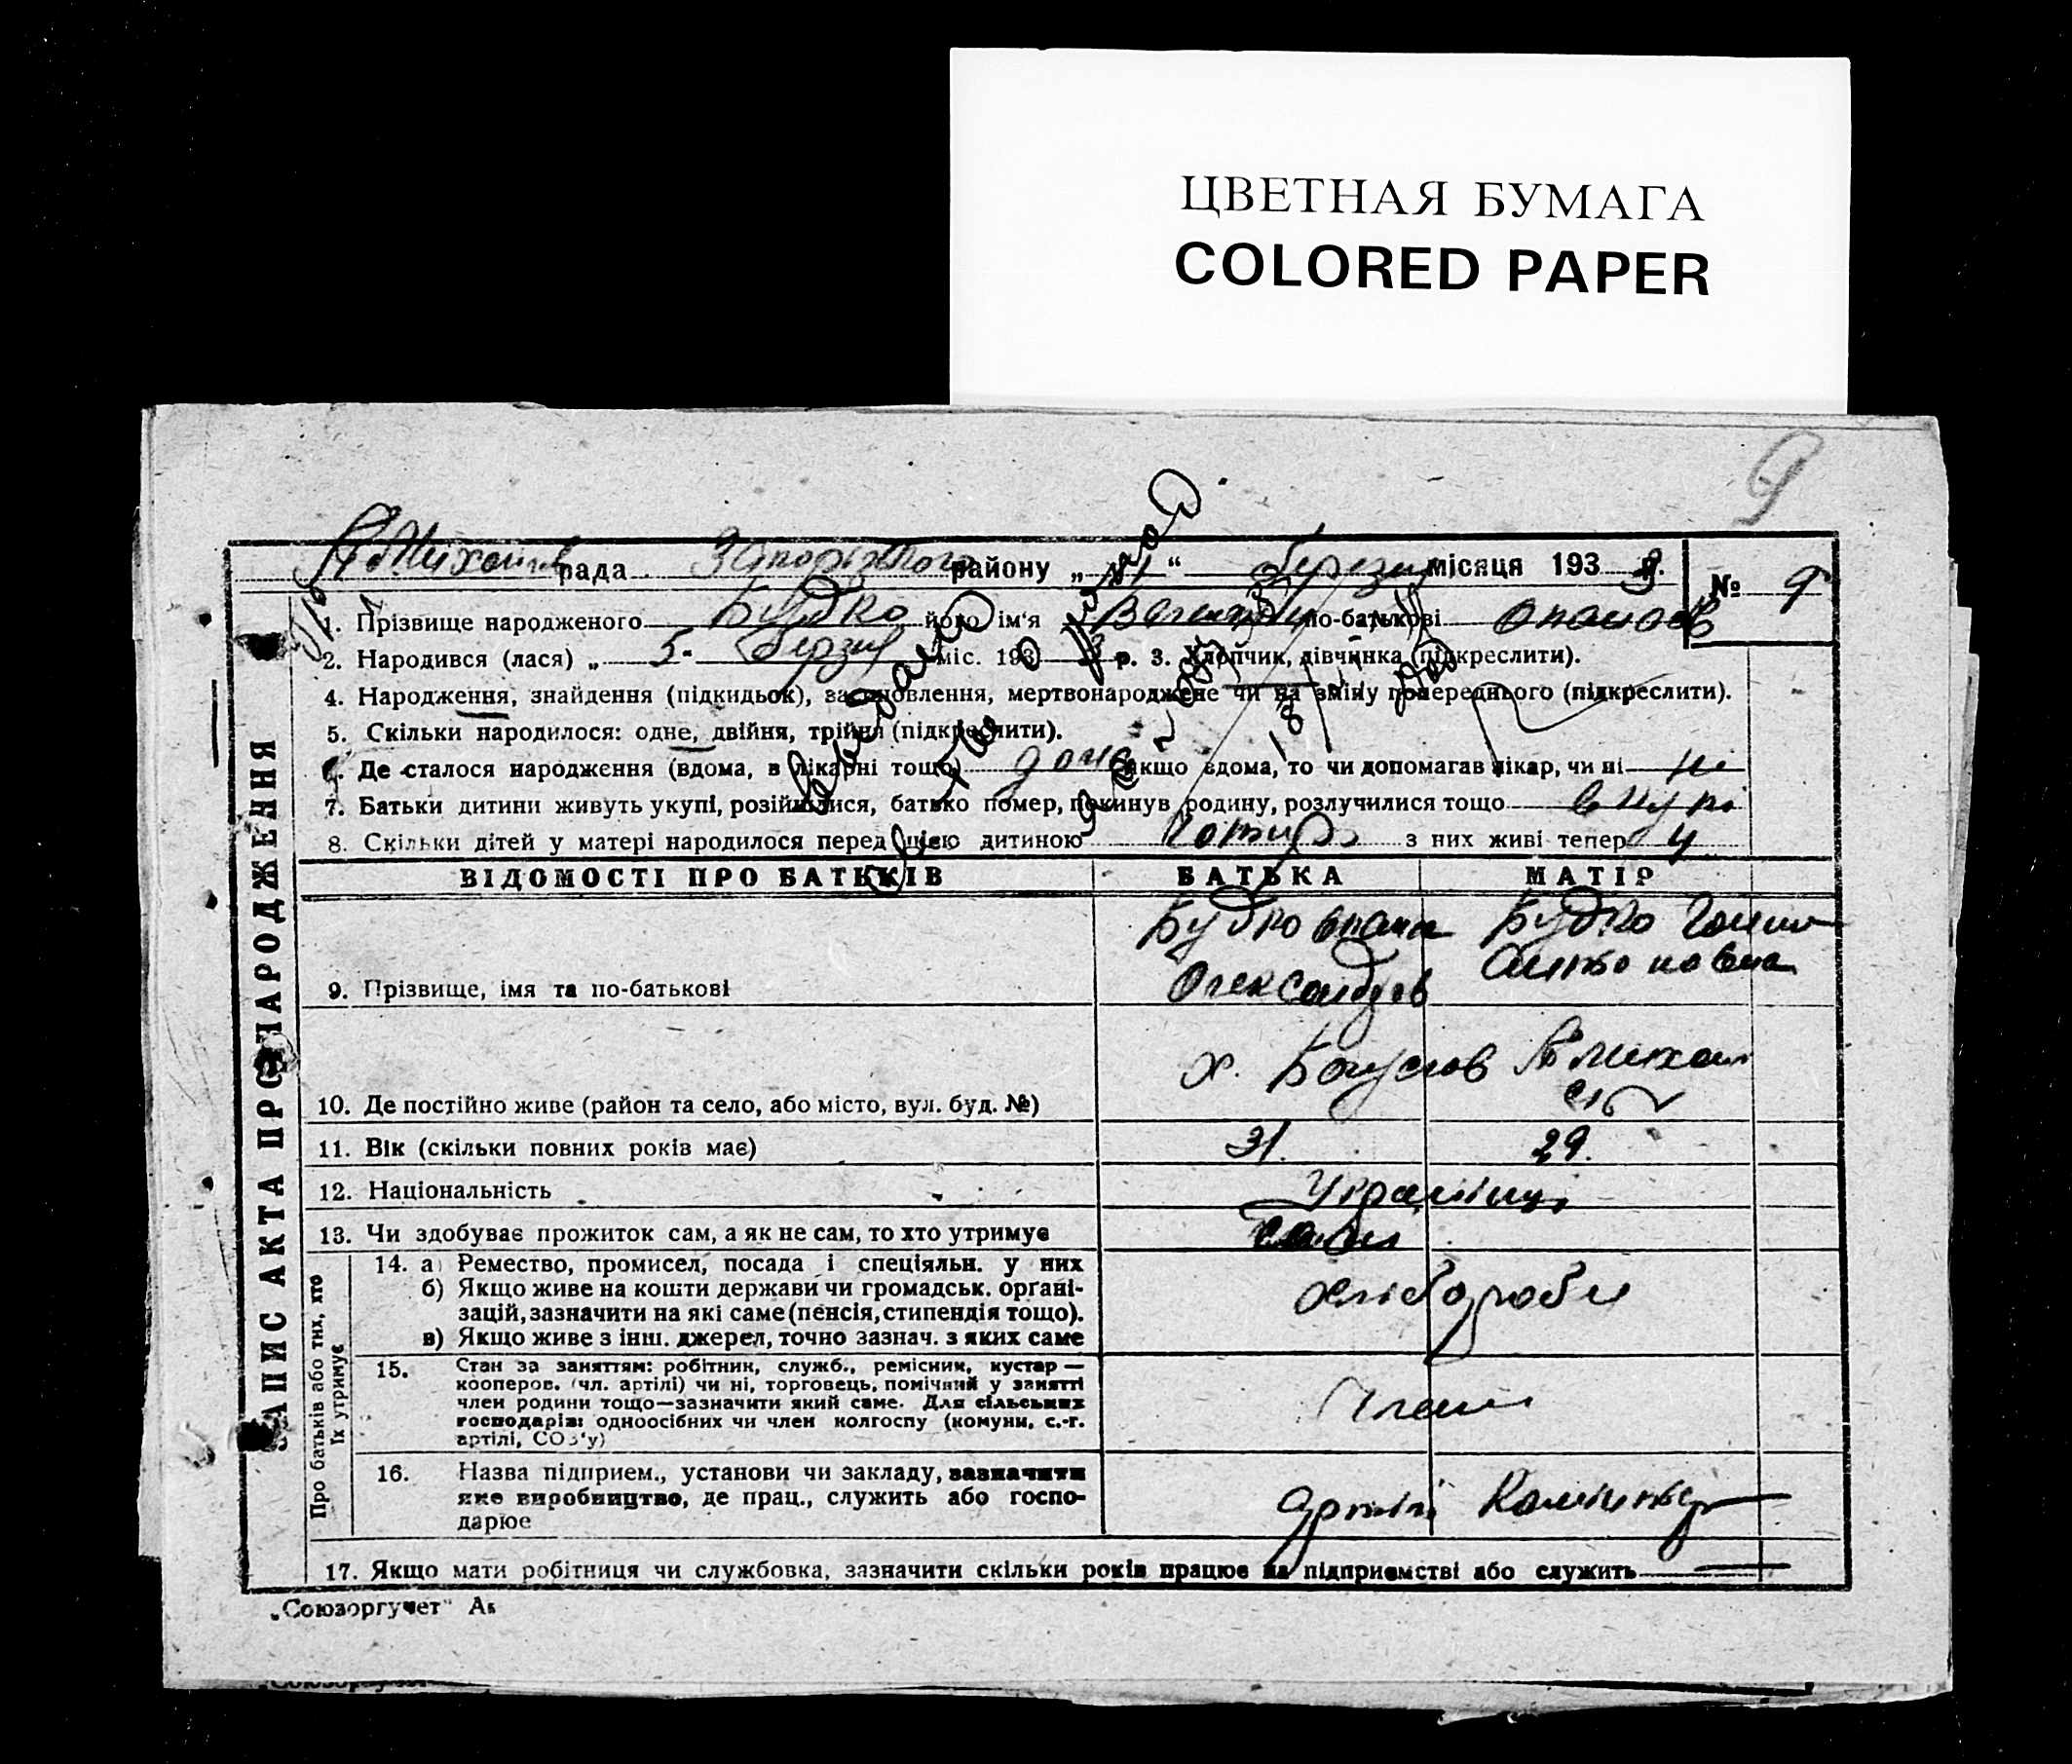 ЦВЕТНАЯ БУМАГА
COLORED PAPER
9
рада Запоріжського району „ “ березня місяця 193 р. № 9
1. Прізвище народженого Будко його ім'я по-батькові Опанов
2. Народився (лася) „ 5 березня міс. 193 3 р. 3. Хлопчик, дівчинка (підкреслити).
4. Народження, знайдення (підкидьок), застановлення, мертвонароджене чи на зміну попереднього (підкреслити).
5. Скільки народилося: одне, двійня, трійня (підкреслити).
6. Де сталося народження (вдома, в лікарні тощо) дома якщо вдома, то чи допомагав лікар, чи ні ні
7. Батьки дитини живуть укупі, розійшлися, батько помер, покинув родину, розлучилися тощо вкупі
8. Скільки дітей у матері народилося перед цією дитиною Чотири з них живі тепер 4
ЗАПИС АКТА ПРО НАРОДЖЕННЯ
ВІДОМОСТІ ПРО БАТЬКІВ БАТЬКА МАТІР
Будко Опана Будко Ганна
Олександров Антоновна
9. Прізвище, імя та по-батькові
х. Богуслов
10. Де постійно живе (район та село, або місто, вул. буд. №)
11. Вік (скільки повних років має) 31. 29.
12. Національність Українці
13. Чи здобуває прожиток сам, а як не сам, то хто утримує сами
Про батьків або тих, хто їх утримує
14. а) Ремество, промисел, посада і спеціяльн. у них
б) Якщо живе на кошти держави чи громадськ. органі-
зацій, зазначити на які саме (пенсія, стипендія тощо). Хлібороби
в) Якщо живе з інш. джерел, точно зазнач. з яких саме
15. Стан за заняттям: робітник, служб., ремісник, кустар —
кооперов. (чл. артілі) чи ні, торговець, помічний у занятті
член родини тощо—зазначити який саме. Для сільських Члени
господарів: одноосібних чи член колгоспу (комуни, с.-г.
артілі, СОЗ'у)
16. Назва підприєм., установи чи закладу, зазначити
яке виробництво, де прац., служить або госпо- Артіль Комінтерн
дарює
17. Якщо мати робітниця чи службовка, зазначити скільки років працює на підприємстві або служить —
„Союзоргучет“